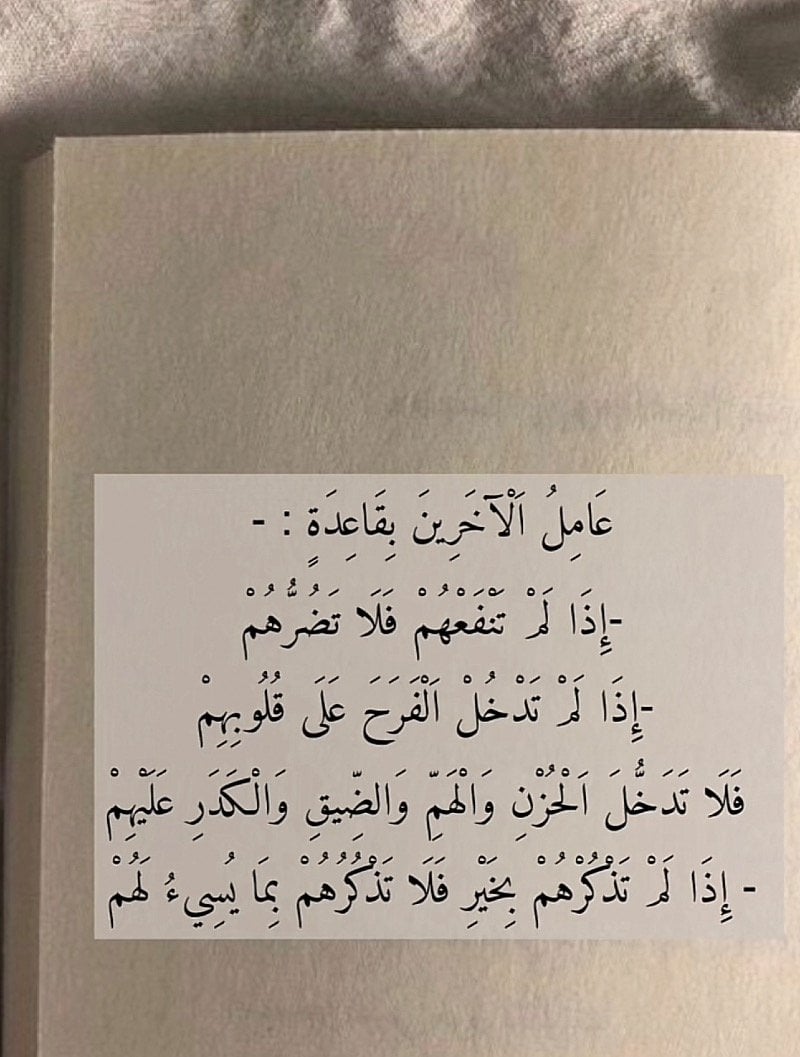 عَامِلُ اَلْآخَرِينَ بِقَاعِدَةٍ : -
-إِذَا لَمْ تَنْفَعْهُمْ فَلَا تَضُرُّهُمْ
-إِذَا لَمْ تَدْخُلْ اَلْفَرَحَ عَلَى قُلُوبِهِمْ
فَلَا تَدَخُّلَ اَلْحُزْنِ وَالْهَمِّ وَالضِّيقِ وَالْكَدَرِ عَلَيْهِمْ
- إِذَا لَمْ تَذْكُرْهُمْ بِخَيْرِ فَلَا تَذْكُرُهُمْ بِمَا يُسِيءُ لَهُمْ